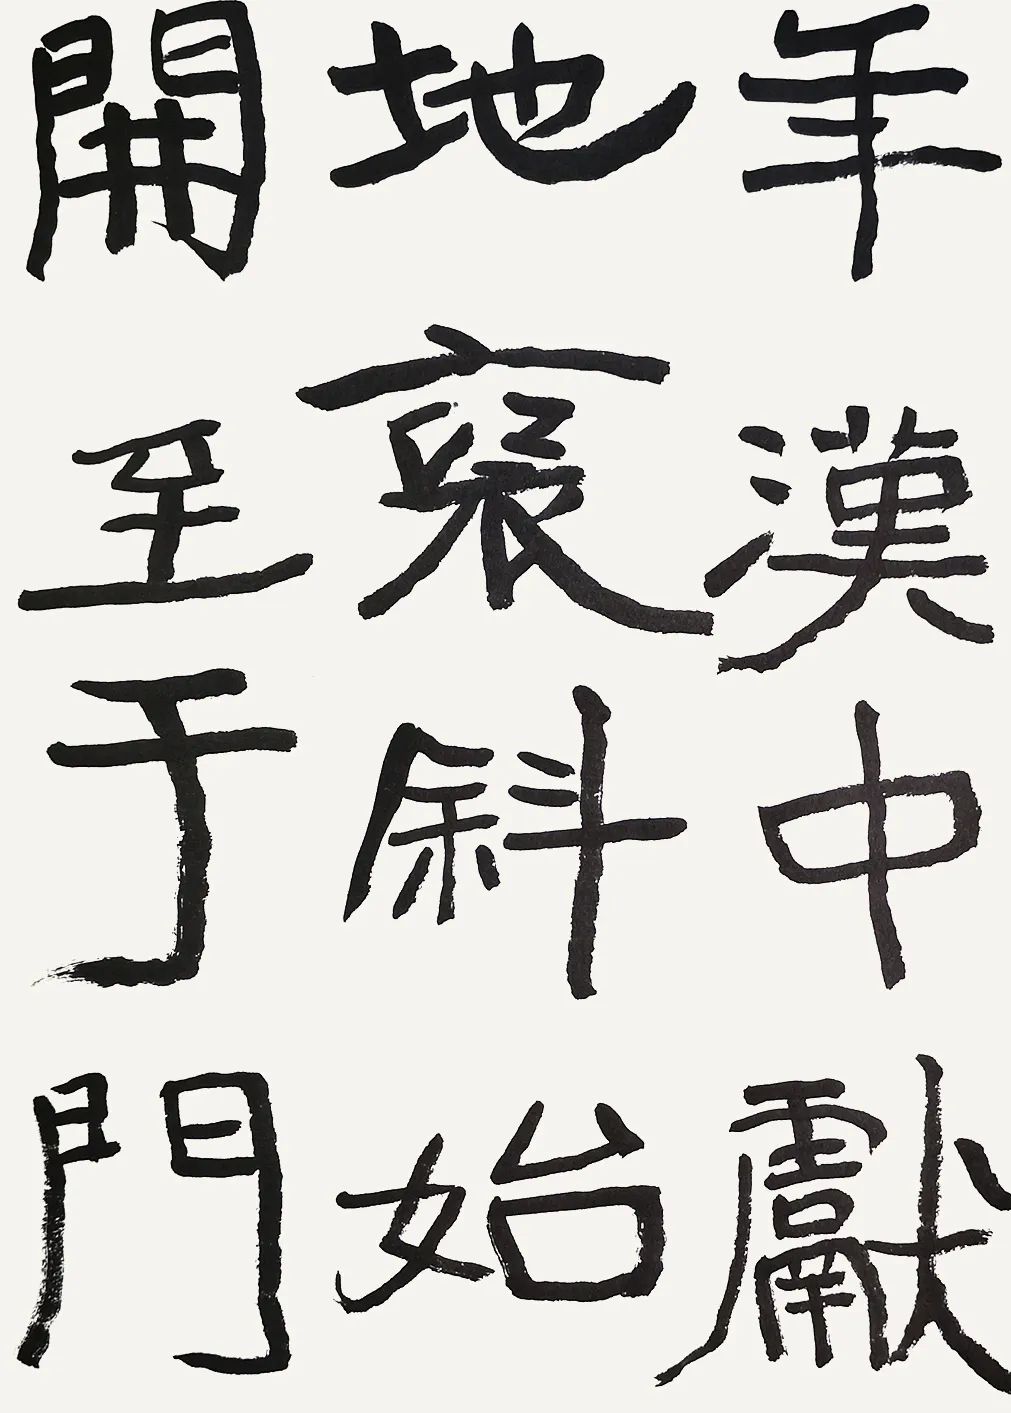 年漢中獻
地褒斜始
開至于門